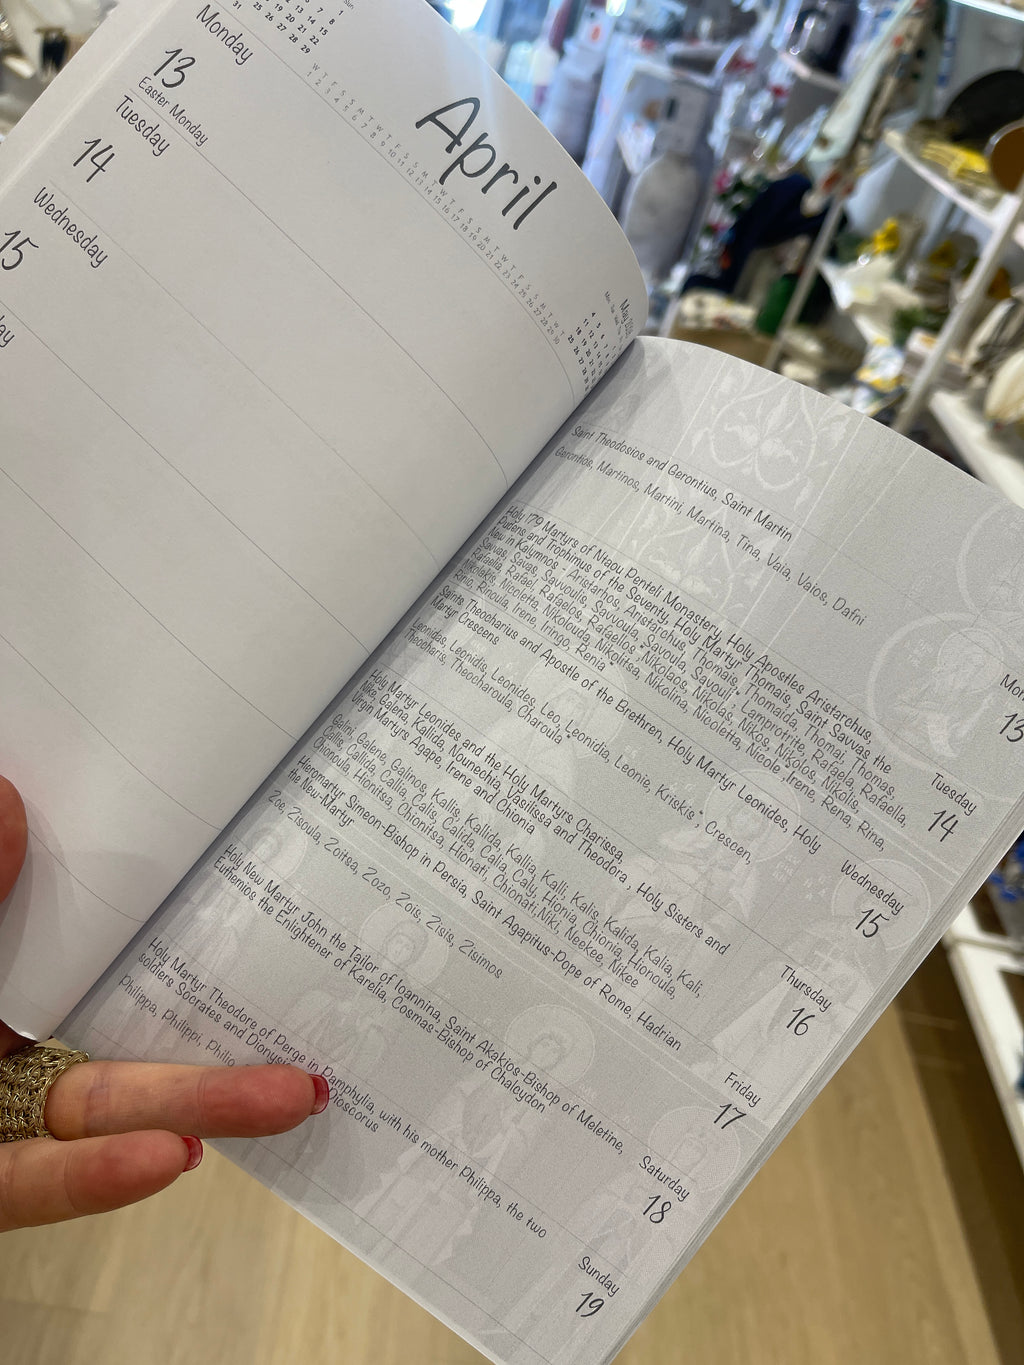 Monday
13
Easter Monday
Tuesday
14
Wednesday
15
April
W T F S S M T W T F S S M T W T F S S M T W T F S S M T W T
1 2 3 4 5 6 7 8 9 10 11 12 13 14 15 16 17 18 19 20 21 22 23 24 25 26 27 28 29 30
Saint Theodosios and Gerontius, Saint Martin
Gerontios, Martinos, Martini, Martina, Tina, Vaia, Vaios, Dafni
13
Holy 179 Martyrs of Ntaou Penteli Monastery, Holy Apostles Aristarchus,
Pudens and Trophimus of the Seventy, Holy Martyr Thomais, Saint Savvas the
New in Kalymnos * Aristarhos, Aristy, Aristarchus * Thomais, Thomaida, Thomai, Thomas,
Savvas, Savas, Savvoulis, Savvoula, Savoula, Savouli * Lamprotrite, Rafaela, Rafaella,
Rafaelia, Rafael, Rafaelos, Rafaellos * Nikolaos, Nikolas, Nikos, Nikolos, Nikolis,
Nikolekis, Nicoletta, Nikolouda, Nikolitsa, Nikolina, Nicoletta, Nicole, Irene, Rena, Rina,
Rinio, Rinoula, Irene, Iringo, Renia *
Tuesday
14
Saints Theocharius and Apostle of the Brethren, Holy Martyr Leonides, Holy
Martyr Crescens
Leonides, Leonidis, Leonides, Leo, Leonidia, Leonie, Kriskis * Crescen,
Theocharis, Theocharoula, Charoula *
Wednesday
15
Holy Martyr Leonides and the Holy Martyrs Charissa,
Nike, Galena, Kalida, Nounechia, Vasilissa and Theodora, Holy Sisters and
Virgin Martyrs Agape, Irene and Chionia
Galini, Galene, Galinos, Kallis, Kallida, Kallia, Kalli, Kalis, Kalida, Kalia, Kali,
Calis, Callida, Callia, Calis, Calida, Calia, Caly, Hionia, Chionia, Hionoula,
Chionoula, Hionitsa, Chionitsa, Hionati, Chionati, Niki, Neekee, Nikee
Thursday
16
Hieromartyr Simeon-Bishop in Persia, Saint Agapitus-Pope of Rome, Hadrian
the New-Martyr
Zoe, Zisoula, Zoitsa, Zozo, Zois, Zisis, Zisimos
Friday
17
Holy New Martyr John the Tailor of Ioannina, Saint Akakios-Bishop of Meletine,
Euthemios the Enlightener of Karelia, Cosmas-Bishop of Chalcydon
Saturday
18
Holy Martyr Theodore of Perge in Pamphylia, with his mother Philippa, the two
soldiers Socrates and Dioscorus
Philippa, Philippi, Philio
Sunday
19